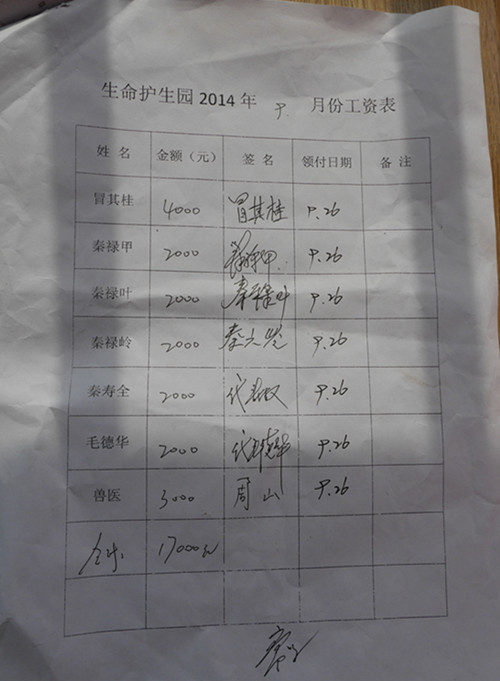 生命护生园 2014 年 月份工资表
姓 名 金额（元） 签 名 领付日期 备 注
冒其桂 4000 冒其桂 .26
秦禄甲 2000 秦禄甲 .26
秦禄叶 2000 秦禄叶 .26
秦禄岭 2000 .26
秦寿全 2000 代 .26
毛德华 2000 代 .26
兽医 3000 周山 .26
合计 17000元